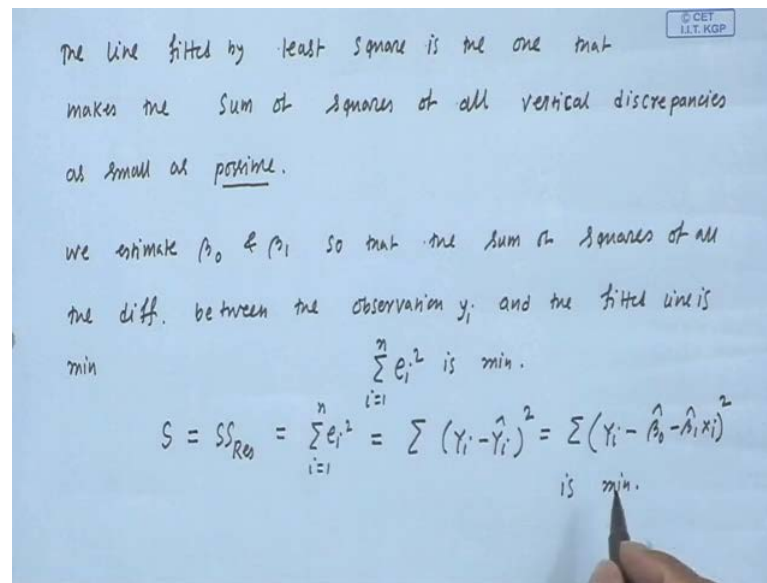 © CET
I.I.T. KGP
The line fitted by least square is the one that
makes the sum of squares of all vertical discrepancies
as small as possible.
We estimate β₀ & β₁ so that the sum of squares of all
the diff. between the observation yᵢ and the fitted line is
min ∑ᵢ₌₁ⁿ eᵢ² is min.
S = SS_Res = ∑ᵢ₌₁ⁿ eᵢ² = ∑ (Yᵢ - Ŷᵢ)² = ∑(Yᵢ - β̂₀ - β̂₁xᵢ)²
is min.